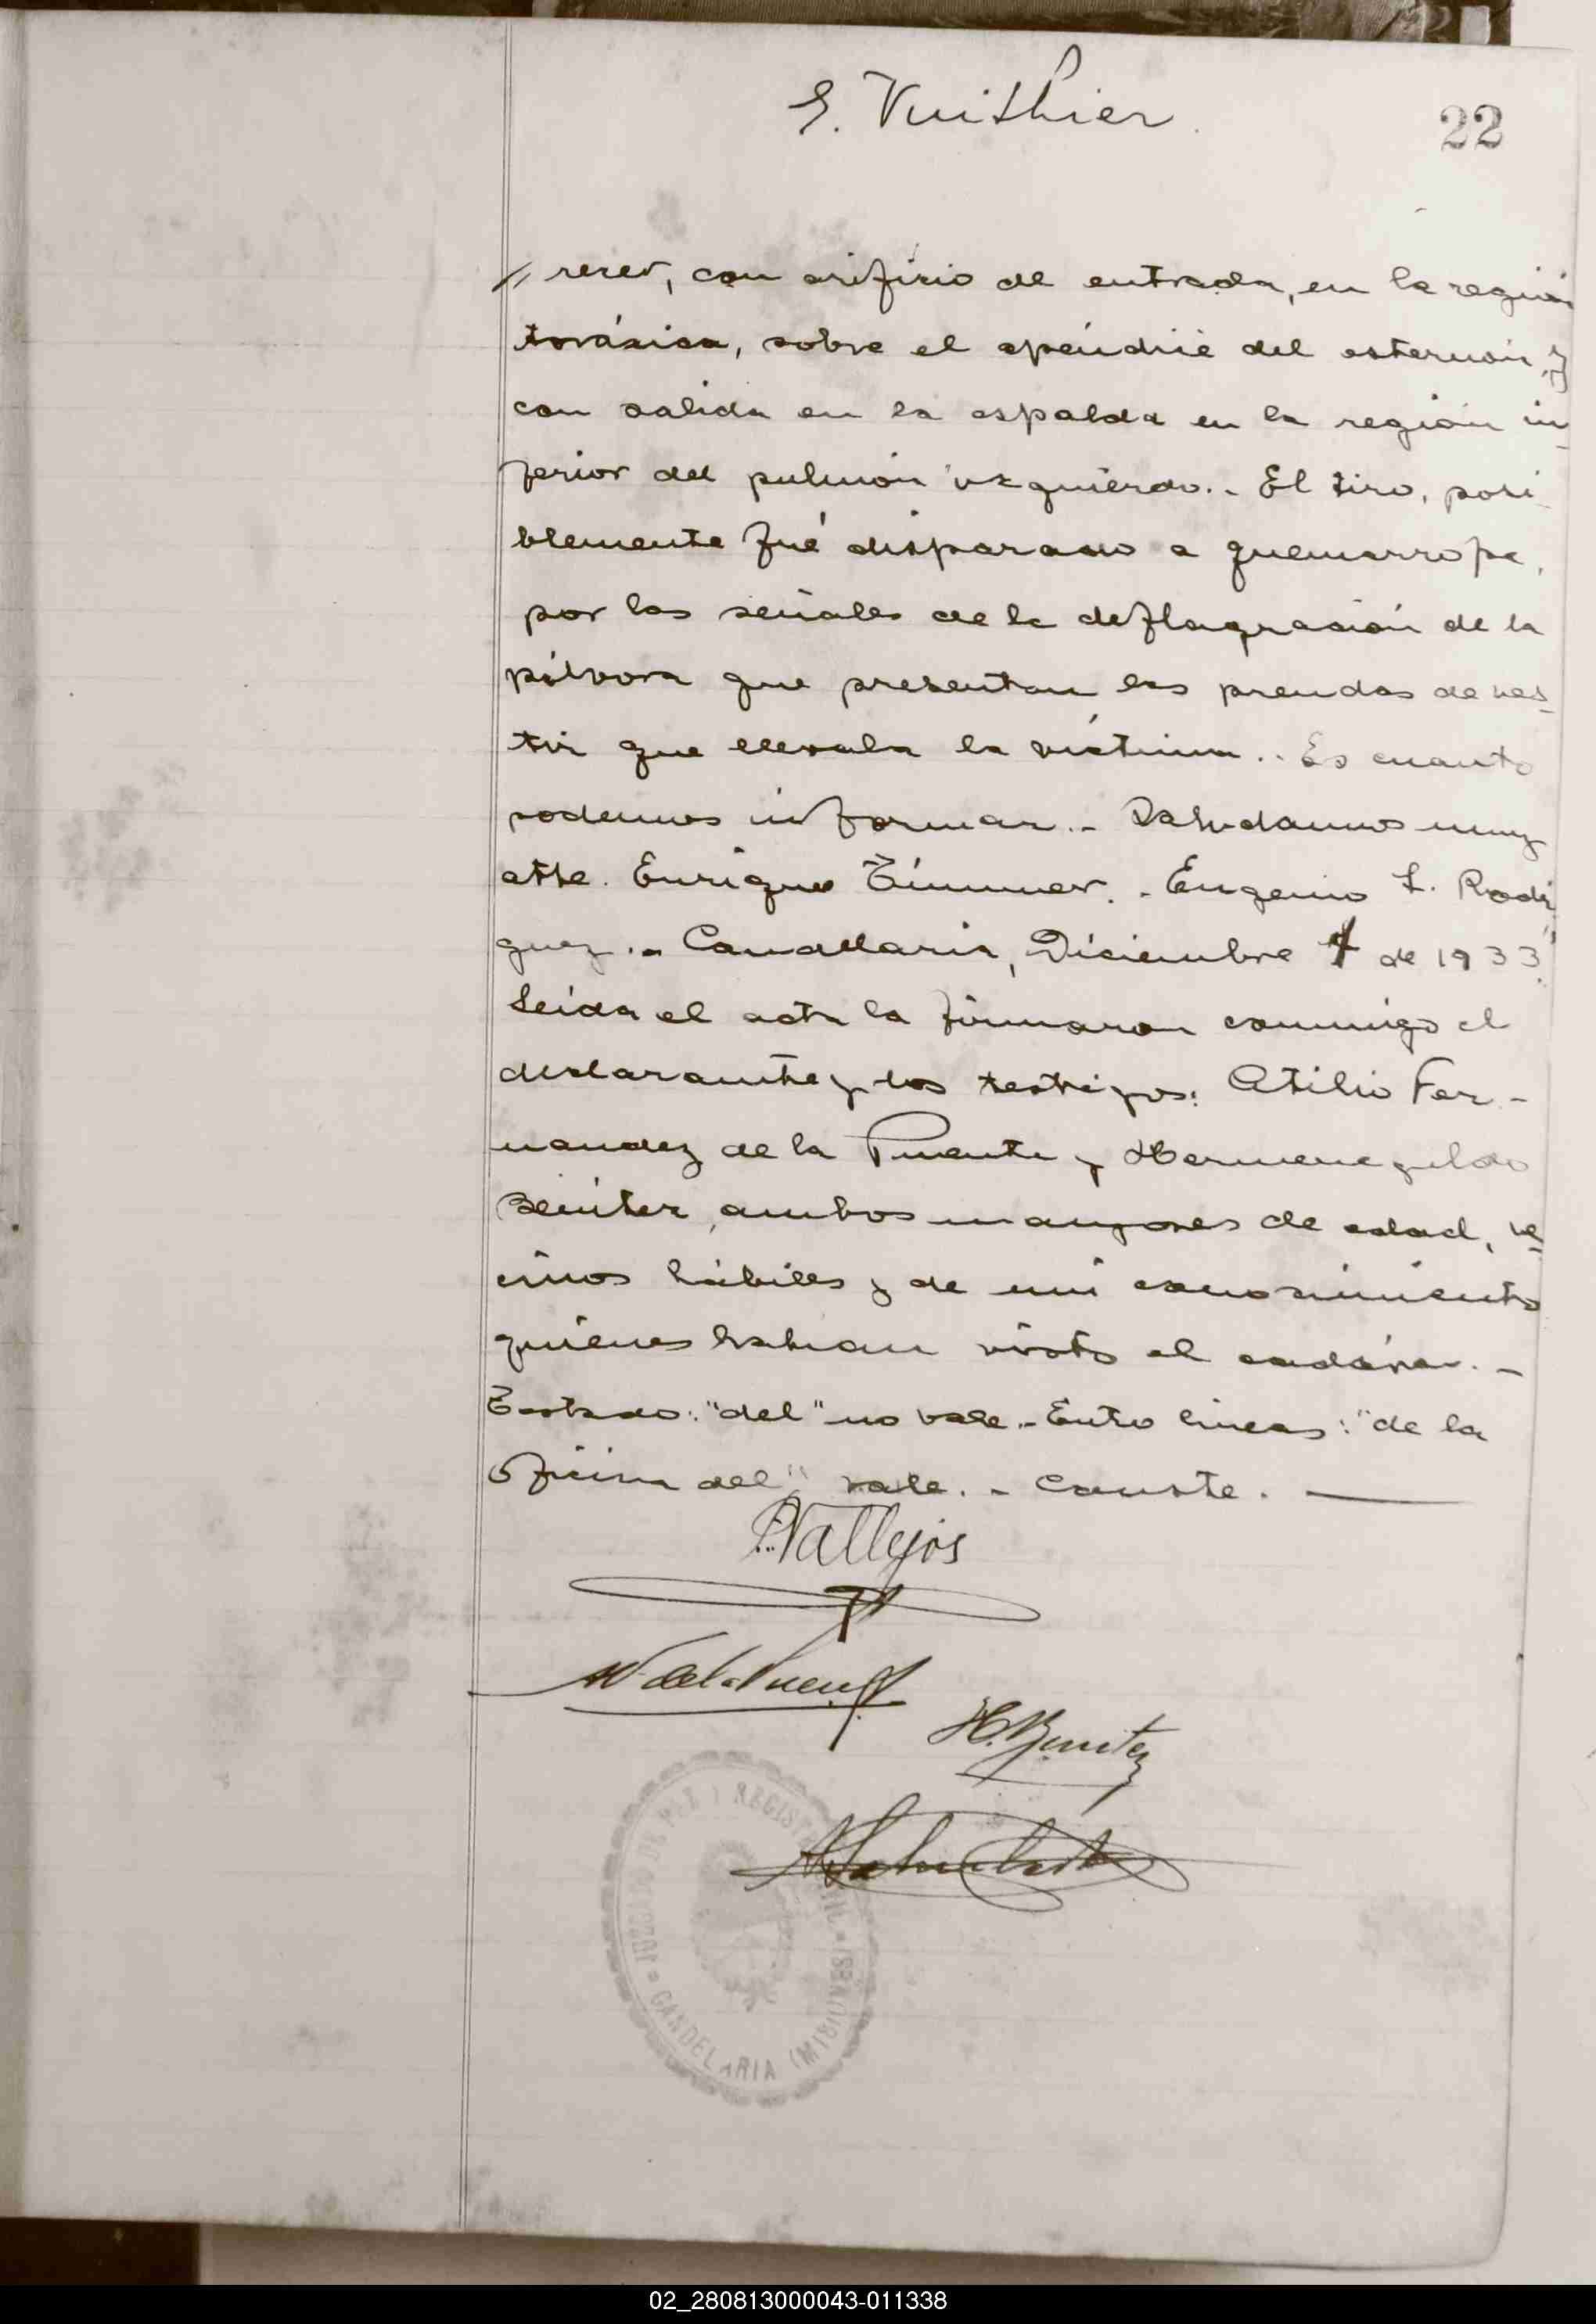 E. Vuithier
22
// rerer, con orificio de entrada, en la región
toráxica, sobre el apéndice del esternón y
con salida en la espalda en la región in-
ferior del pulmón izquierdo.- El tiro, posi-
blemente fué disparado a quemarropa,
por las señales de la deflagración de la
pólvora que presentan las prendas de ves-
tir que llevaba la víctima.- Es cuanto
podemos informar.- Saludamos muy
atte. Enrique Zimmer.- Eugenio L. Rodri
guez.- Candelaria, Diciembre 4 de 1933.
Leída el acta la firmaron conmigo el
declarante y los testigos: Atilio Fer-
nandez de la Puente y Hermenegildo
Benitez, ambos mayores de edad, ve-
cinos hábiles y de mi conocimiento
quienes habian visto el cadáver.-
Testado: "del" no vale.- Entre lineas: "de la
Oficina del" vale.- Conste.-
Vallejos
de la Puente
H. Benitez
JUZGADO DE PAZ Y REGISTRO CIVIL = CANDELARIA (MISIONES) =
02_280813000043-011338